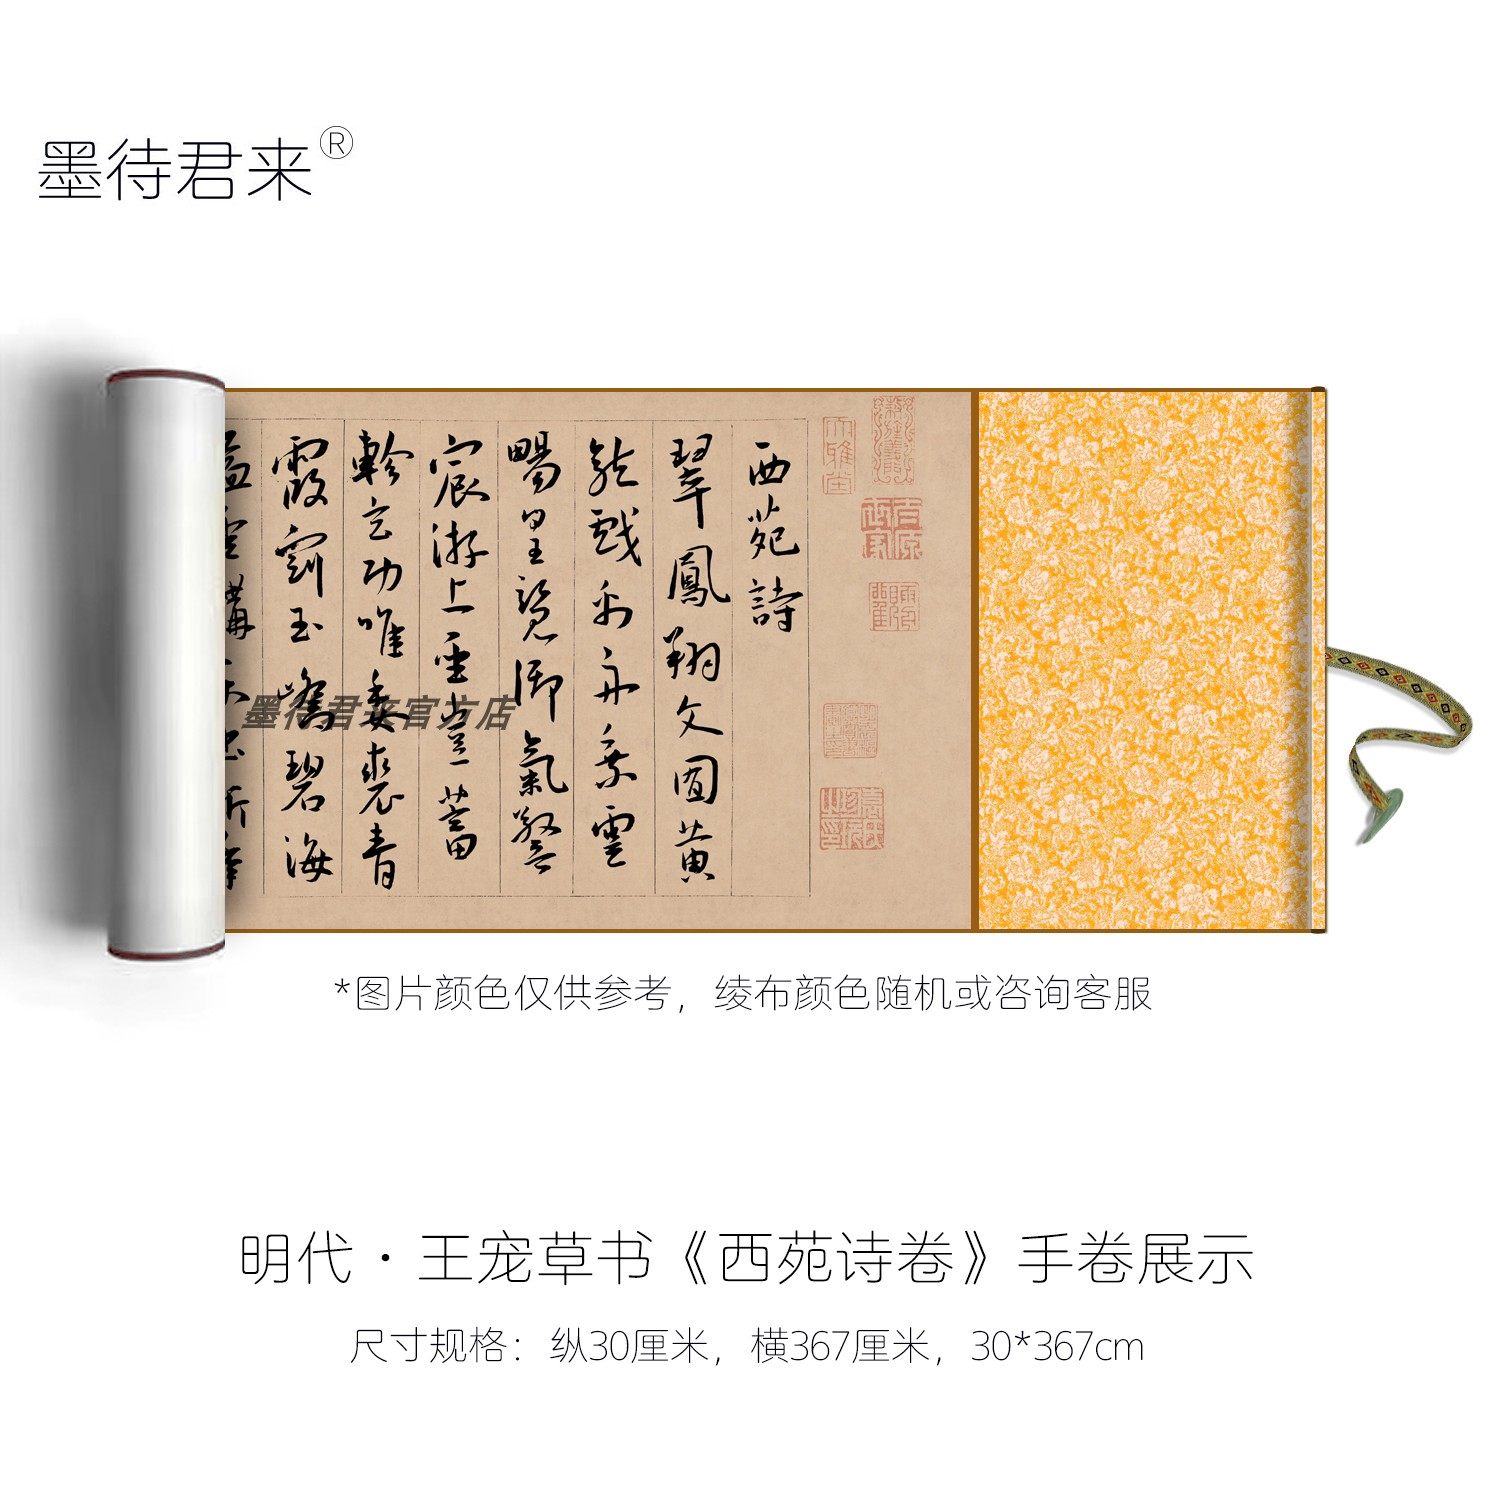 墨待君来®
西苑詩
翠鳳翔文囿黄
龍戲彩舟乘雲
暢皇覽御氣警
宸游上聖豈蓄
軫玄功唯委裘青
霞割玉嶠碧海
墨待君来官方店
*图片颜色仅供参考，绫布颜色随机或咨询客服
明代·王宠草书《西苑诗卷》手卷展示
尺寸规格：纵30厘米，横367厘米，30*367cm